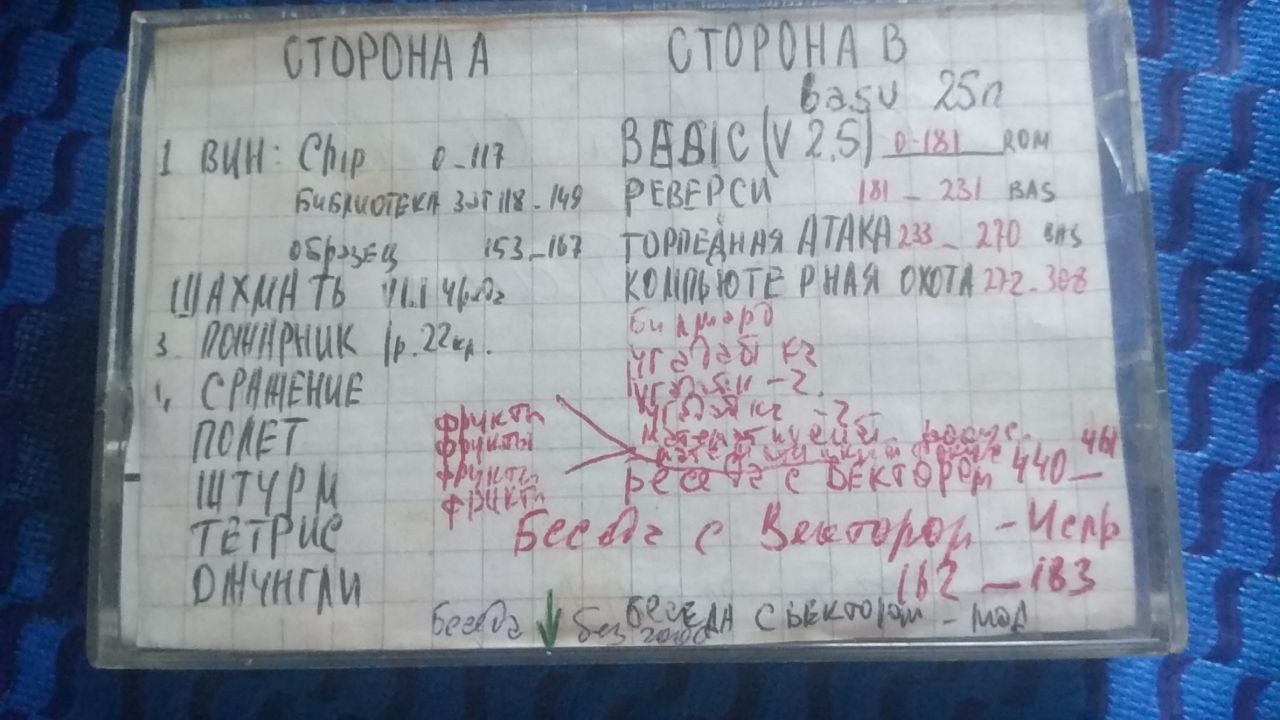 СТОРОНА А
1 ВИН: Chip 0-117
БИБЛИОТЕКА 118-149
ОбРАЗЕЦ 153-167
ШАХМАТЬ
3. ПОЖАРНИК 1р.22кр.
СРАЖЕНИЕ
ПОЛЕТ
ШТУРМ
ТЕТРИС
ДЖУНГЛИ
фрукты
фрукты
фрукты
фрукты
СТОРОНА В
basu 25п
BASIC (V 2.5) 0-181 ROM
РЕВЕРСИ 181-231 BAS
ТОРПЕДНАЯ АТАКА 233-270 BAS
КОМПЬЮТЕРНАЯ ОХОТА 272-308
билиард
угадай ка
угадай ка -2
беседа с Вектором 440-461
Беседа с Вектором - Испр
162-183
Беседа без голос
БЕСЕДА С ВЕКТОРОМ - МОД